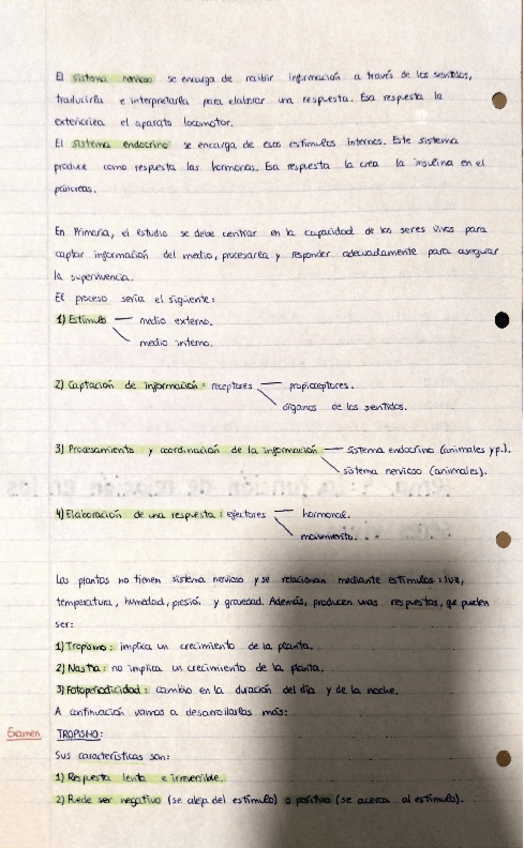 El sistema nervioso se encarga de recibir información a través de los sentidos,
traducirla e interpretarla para elaborar una respuesta. Esa respuesta la
exterioriza el aparato locomotor.
El sistema endocrino se encarga de esos estímulos internos. Este sistema
produce como respuesta las hormonas. Esa respuesta la crea la insulina en el
páncreas.
En Primaria, el estudio se debe centrar en la capacidad de los seres vivos para
captar información del medio, procesarla y responder adecuadamente para asegurar
la supervivencia.
El proceso sería el siguiente:
1) Estímulo — medio externo.
medio interno.
2) Captación de información: receptores — propioceptores.
órganos de los sentidos.
3) Procesamiento y coordinación de la información — sistema endocrino (animales y p.).
sistema nervioso (animales).
4) Elaboración de una respuesta: efectores — hormonal.
movimiento.
Las plantas no tienen sistema nervioso y se relacionan mediante estímulos: luz,
temperatura, humedad, presión y gravedad. Además, producen unas respuestas, que pueden
ser:
1) Tropismo: implica un crecimiento de la planta.
2) Nastia: no implica un crecimiento de la planta.
3) Fotoperiodicidad: cambio en la duración del día y de la noche.
A continuación vamos a desarrollarlas más:
Examen TROPISMO:
Sus características son:
1) Respuesta lenta e irreversible.
2) Puede ser negativo (se aleja del estímulo) o positivo (se acerca al estímulo).